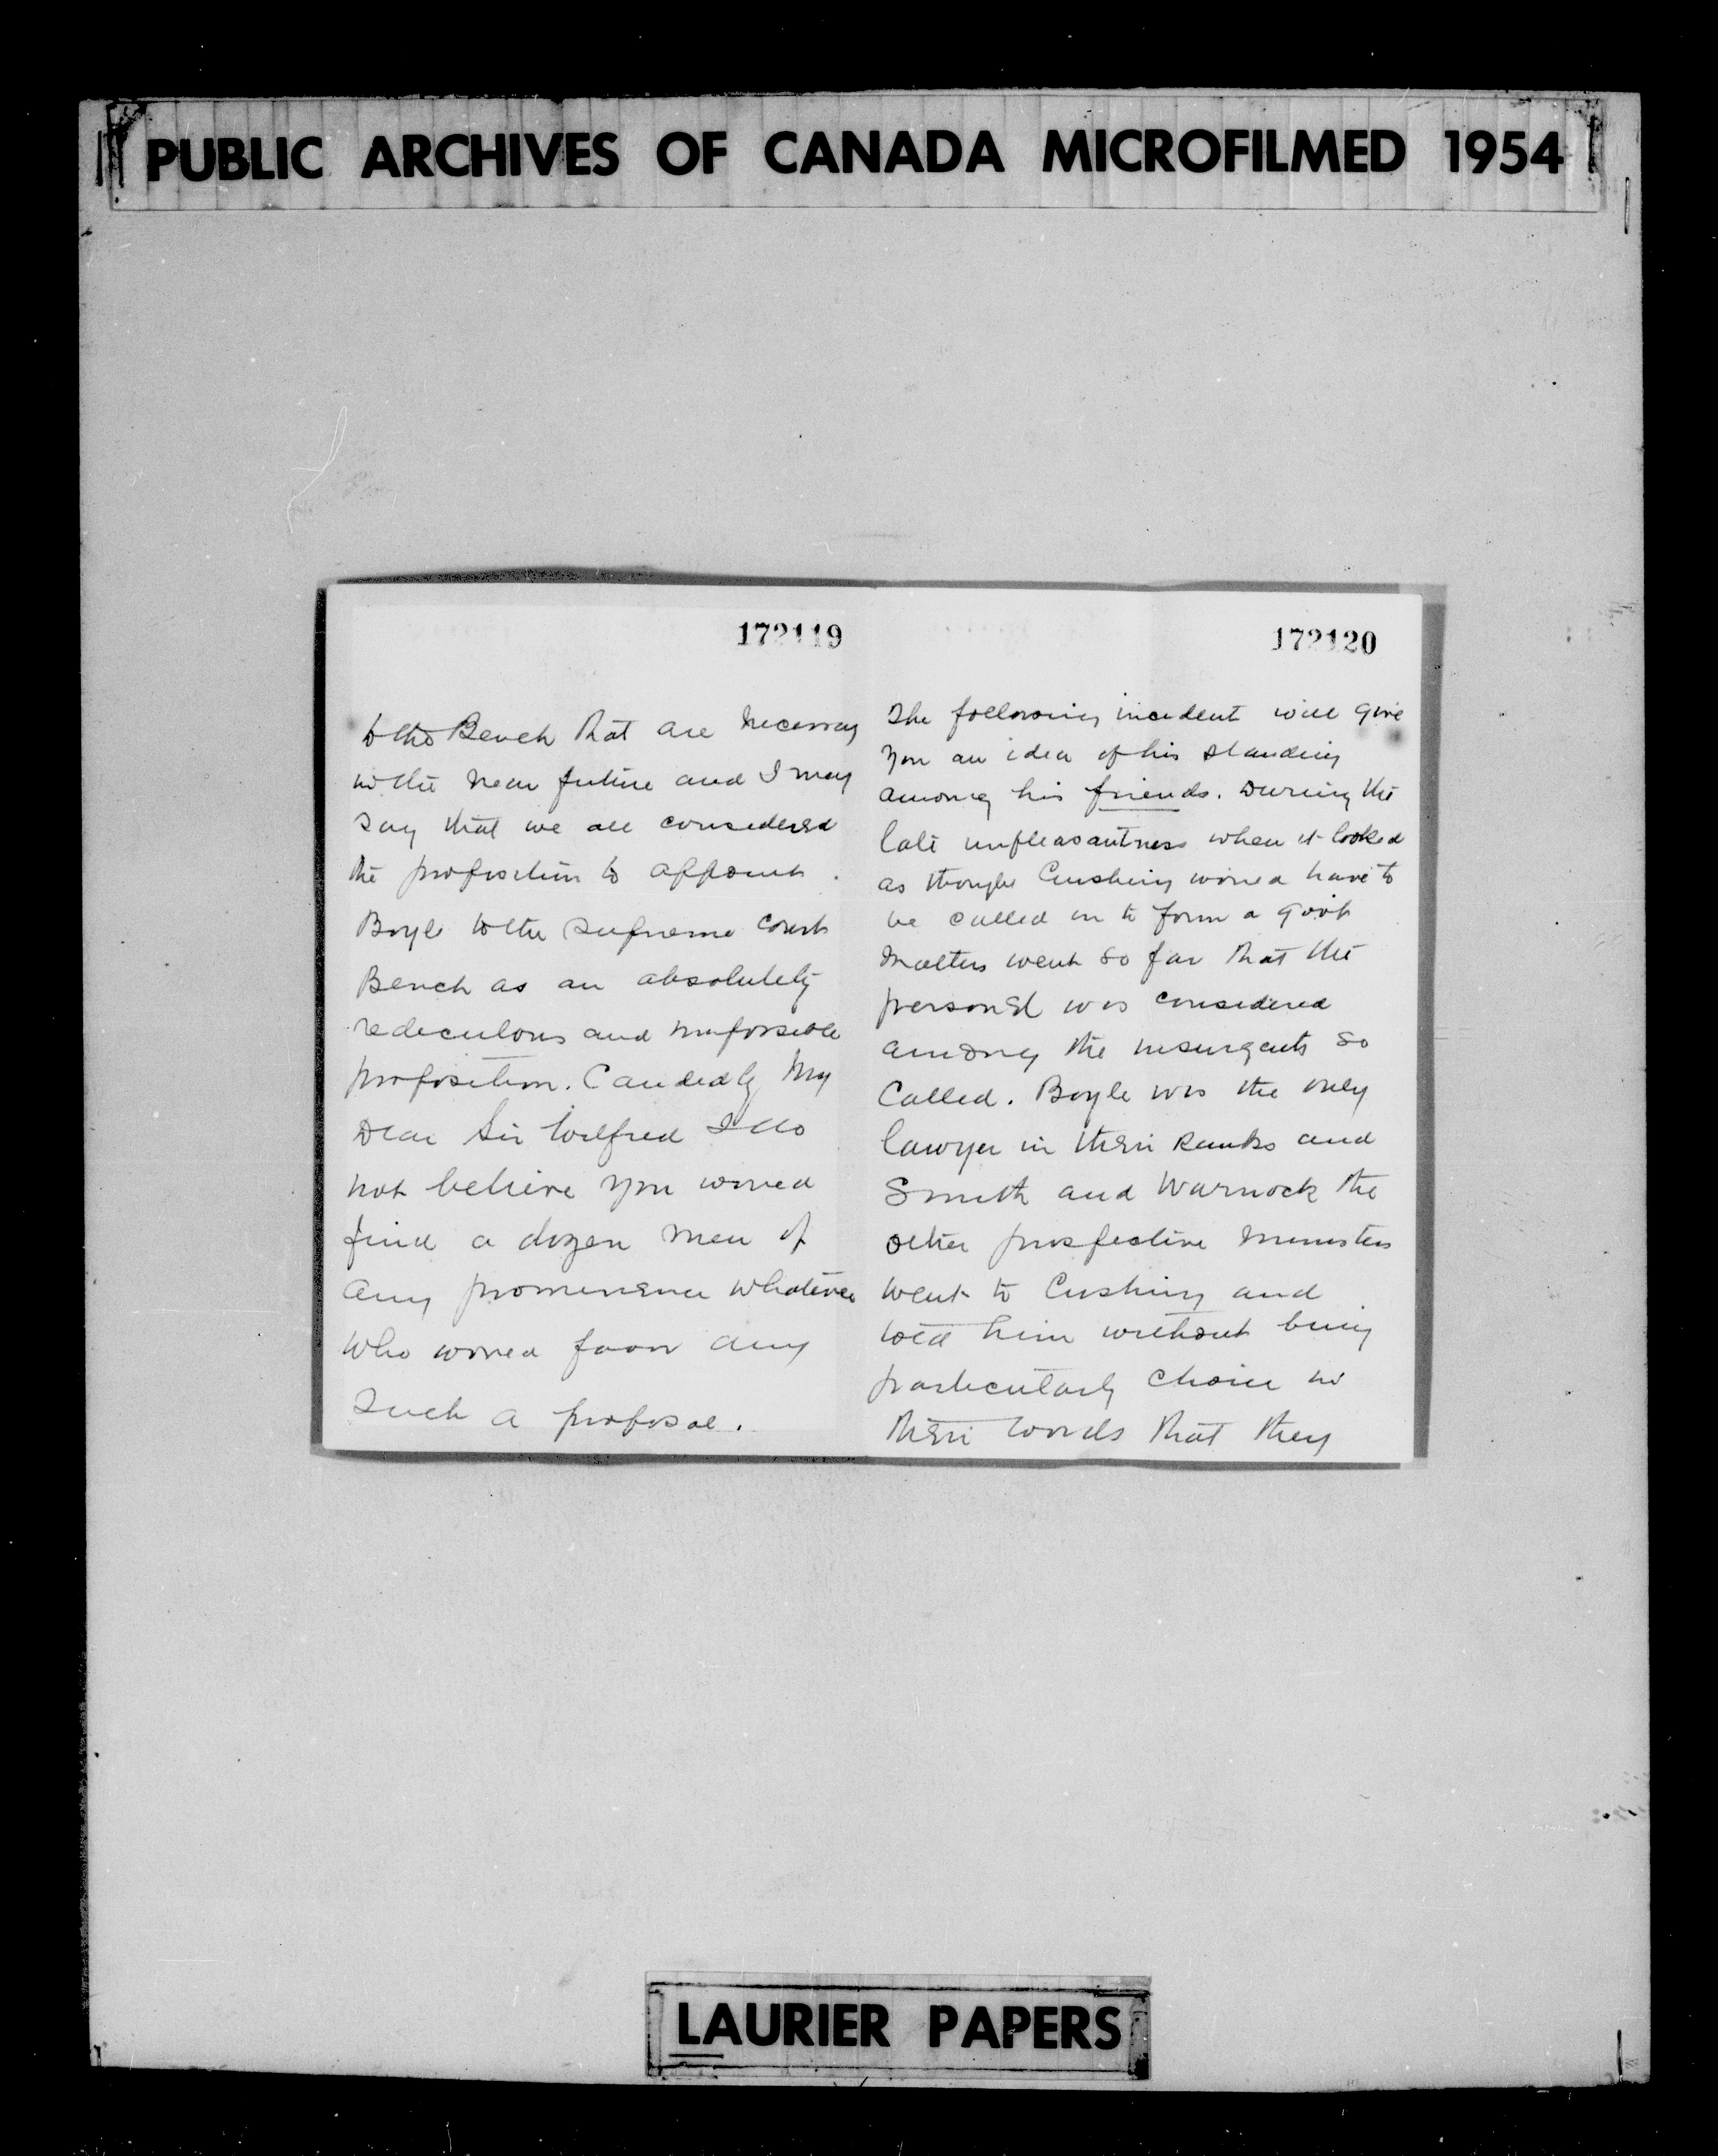 PUBLIC ARCHIVES OF CANADA MICROFILMED 1954
172119
to the Bench that are necessary
in the near future and I may
say that we all considered
the proposition to appoint
Boyle to the Supreme Court
Bench as an absolutely
rediculous and impossible
proposition. Candedly My
Dear Sir Wilfred I do
not believe you would
find a dozen men of
any prominence whatever
who would favor any
such a proposal.
172120
The following incident will give
you an idea of his standing
among his friends. During the
late unpleasantness when it looked
as though Cushing would have to
be called in to form a govt
matters went so far that the
personel was considered
among the insurgents so
called. Boyle was the only
lawyer in their ranks and
Smith and Warnock the
other prospective ministers
went to Cushing and
told him without being
particularly choice in
their words that they
LAURIER PAPERS